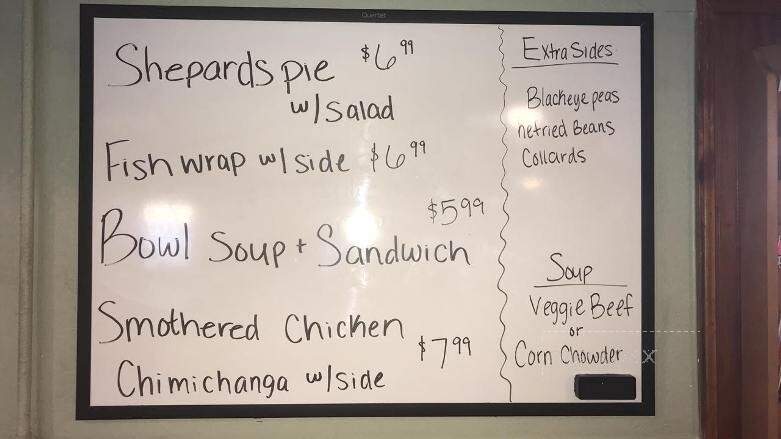 Quartet
Shepards pie $6.99
w/salad
Fish wrap w/side $6.99
$5.99
Bowl Soup + Sandwich
Smothered Chicken
$7.99
Chimichanga w/side
Extra Sides
Blackeye peas
Refried Beans
Collards
Soup
Veggie Beef
or
Corn Chowder